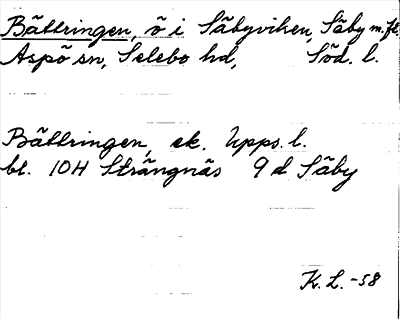 Bättringen, ö i Säbyviken, Säby m. fl.
Aspö sn, Selebo hd, Söd. l.
Bättringen, ek. Upps. l.
bl. 10H Strängnäs 9d Säby
K. L. -58